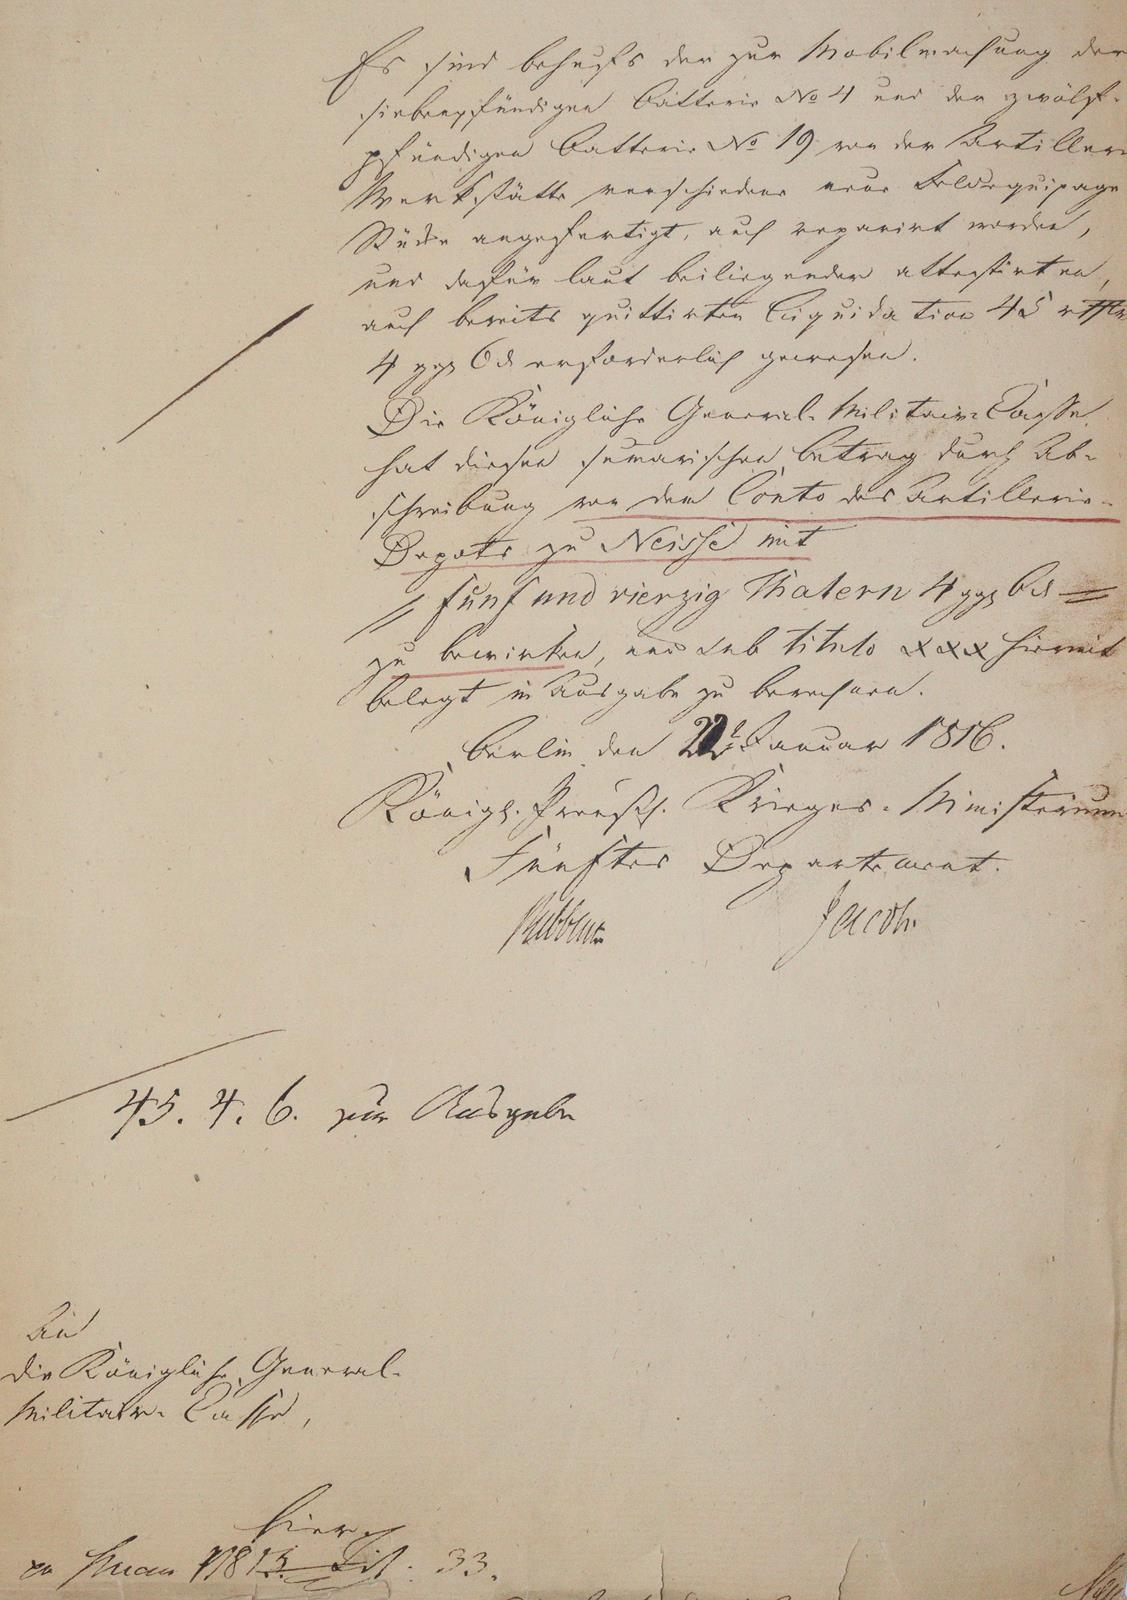 Es sind behufs der zur Mobilmachung der
siebenpfündigen Batterie No 4 und der zwölf-
pfündigen Batterie No 19 von der Artillerie
Werkstätte verschiedene neue Feldequipage
Stücke angefertigt, auch reparirt worden,
und dafür laut beiliegender attestirten,
auch bereits quittirten Liquidation 45 rthlr
4 ggr 6 d erforderlich gewesen.
Die Königliche General-Militair-Casse
hat diesen sumarischen Betrag durch Ab-
schreibung von dem Conto des Artillerie-
Depots zu Neisse mit
fünf und vierzig Thalern 4 ggr 6 d
zu bewirken, und sub titulo XXX hiermit
belegt in Ausgabe zu berechnen.
Berlin den Januar 1816.
Königl. Preußs. Krieges-Ministerium
Fünftes Departement.
Ribbent Jacobi
45. 4. 6. zur Ausgabe
An
die Königliche General-
Militair-Casse,
hier
1813 Tit. 33.